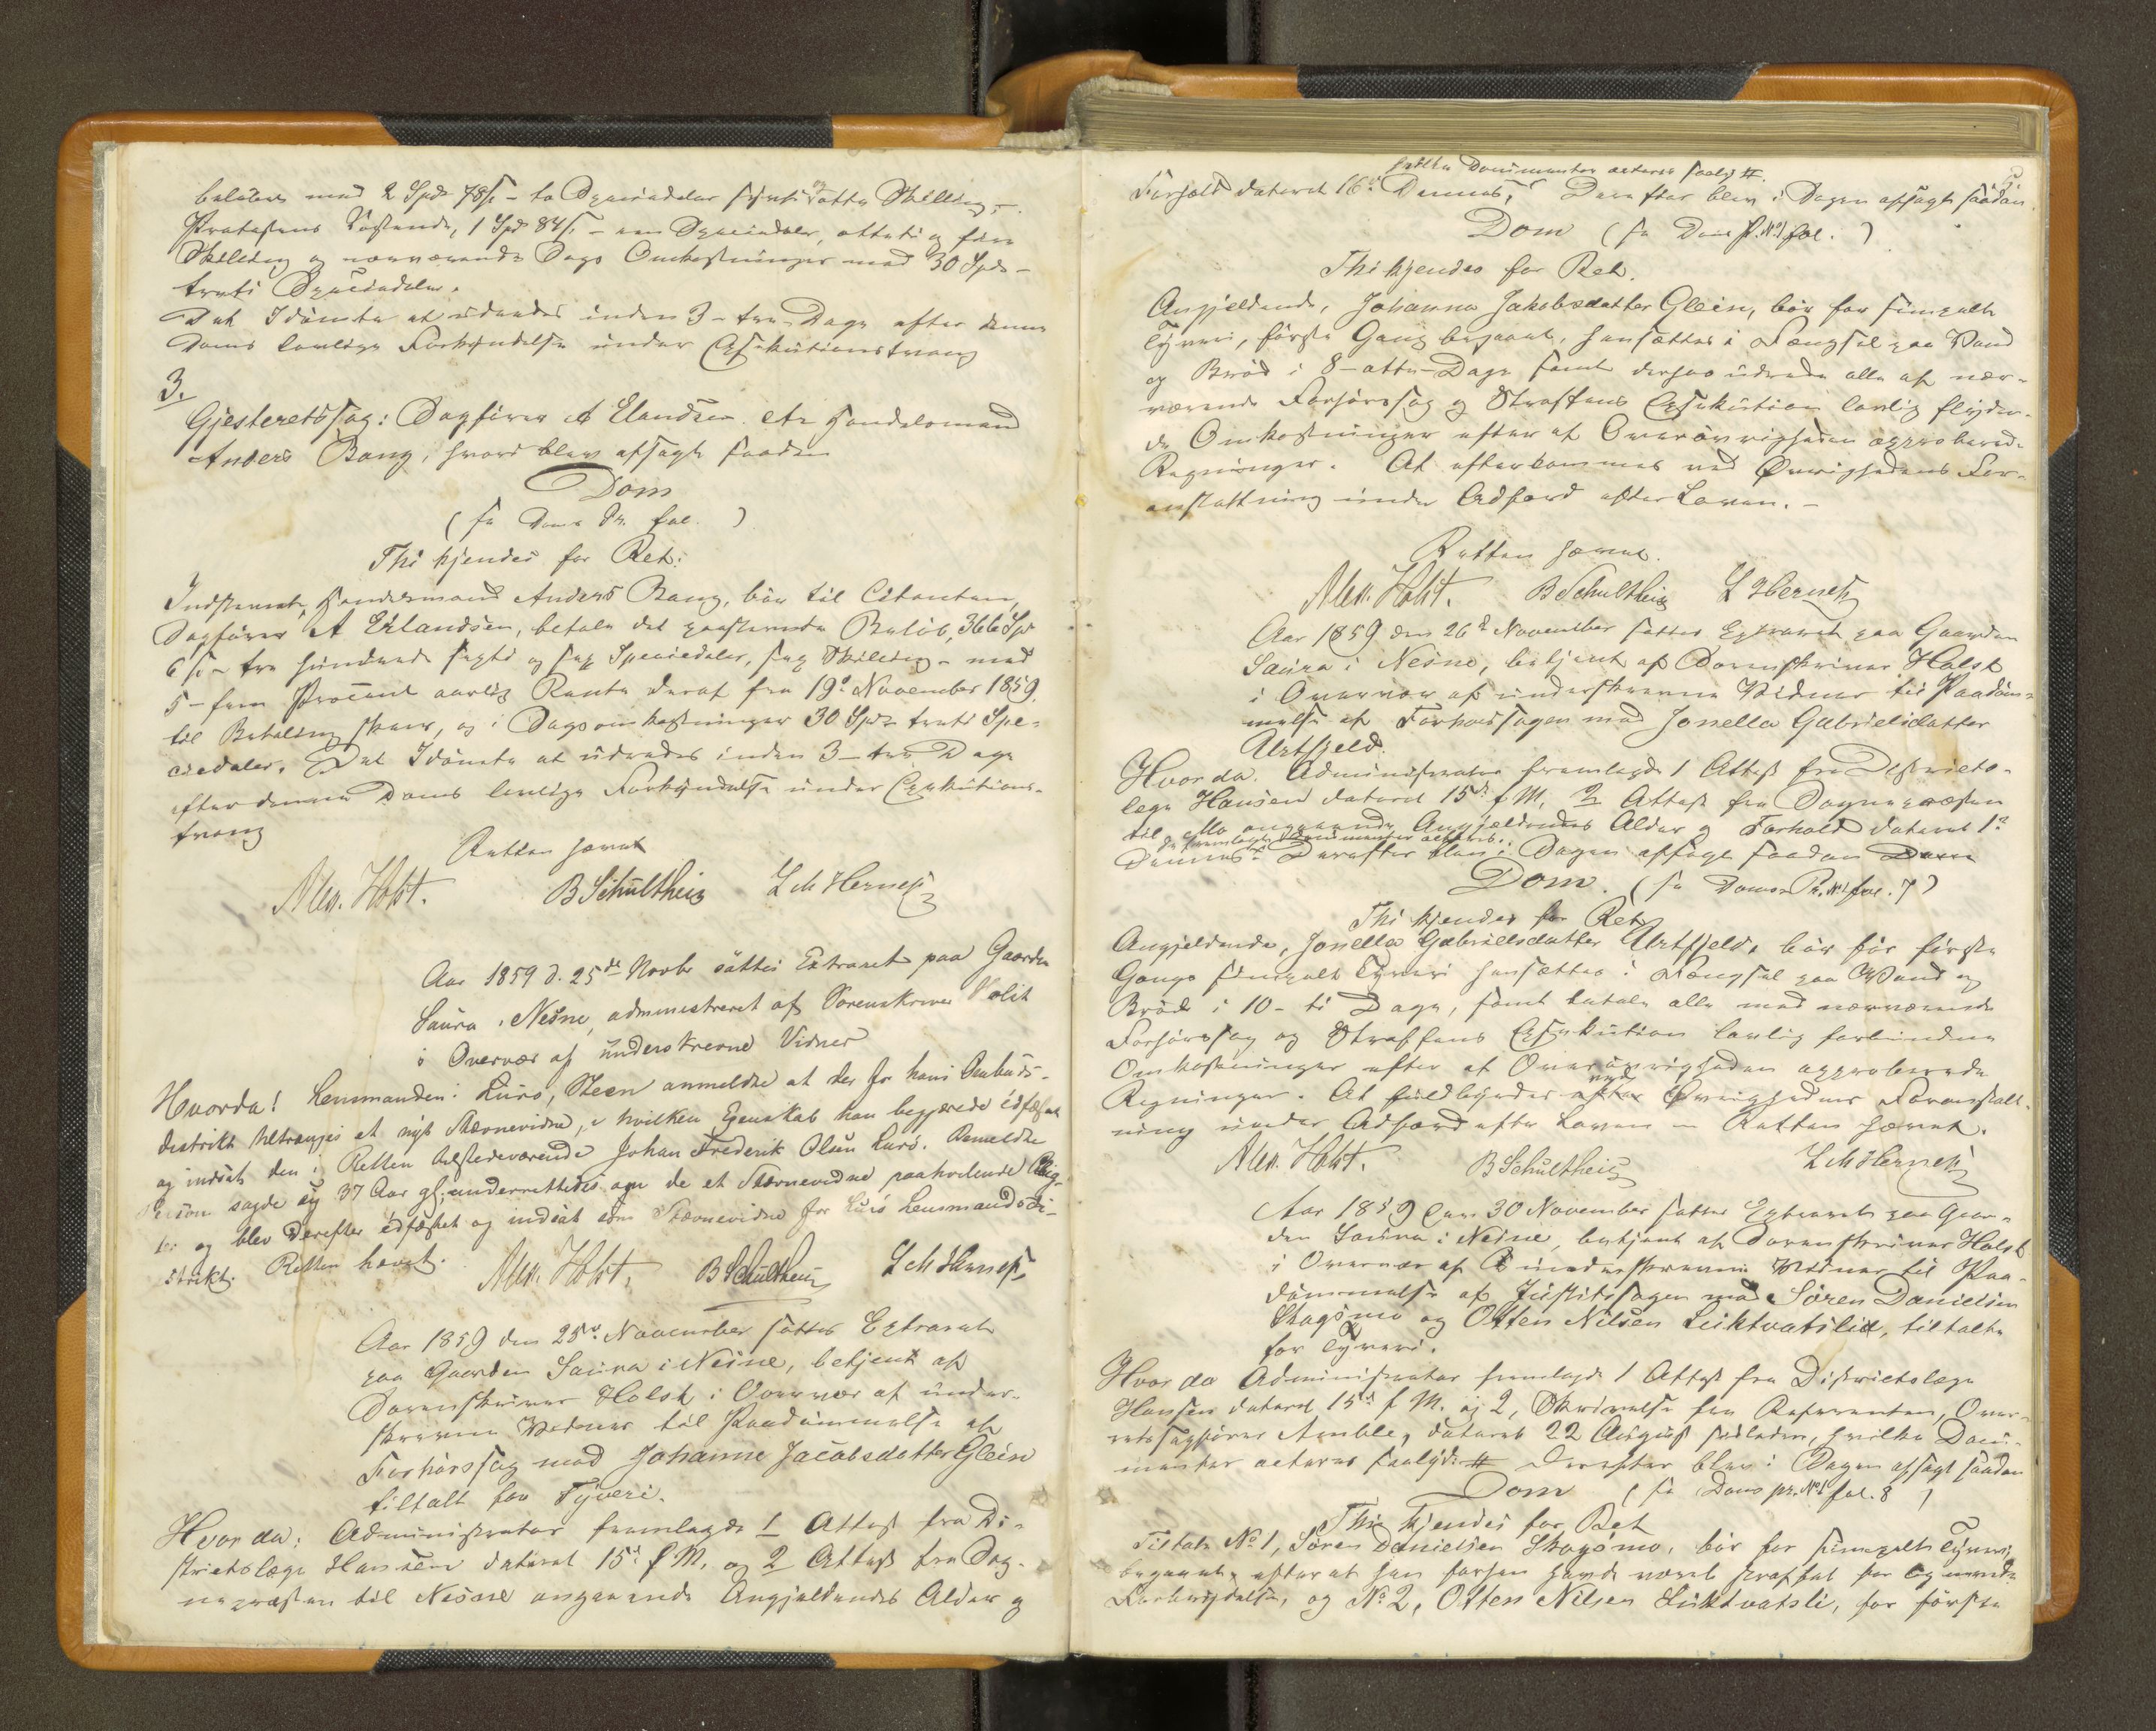 beløbet med 2 Spd 78ß - to Speciedaler sytti og otte Skilling,
Protestens Kostende, 1 Spd 84ß - een Speciedaler, otteti og fire
Skilling og nærværende Sags Omkostninger med 30 Spd -
treti Speciedaler.
Det Idømte at udredes inden 3 - tre - Dage efter denne
Doms lovlige Forkyndelse under Exekutionstvang
3.
Gjesteretssag: Sagfører A Elandsen ctr Handelsmand
Anders Bang, hvori blev afsagt saadan
Dom
(se Doms Pr. fol. )
Thi kjendes for Ret:
Indstevnte, Handelsmand Anders Bang, bør til Citanten,
Sagfører A Erlandsen, betale det paastevnte Beløb, 366 Spd
6 ß - tre hundrede sexti og sex Speciedaler, sex Skilling - med
5 - fem Procent aarlig Rente deraf fra 19de November 1859
til Betaling skeer, og i Sagsomkostninger 30 Spd treti Spe-
ciedaler. Det Idømte at udredes inden 3 - tre Dage
efter denne Doms lovlige Forkyndelse under Exekutions-
tvang
Retten hævet
Alex. Holst. B Schultheis L M Hernes
Aar 1859 d. 25de Novbr sattes Extraret paa Gaarden
Saura i Nesne, administreret af Sorenskriver Holst
i Overvær af underskrevne Vidner
Hvorda! Lensmanden i Lurø, Steen anmeldte at der for hans Ombuds-
distrikt tiltrænges et nyt Stævnevidne, i hvilken Egenskab han begjærede edfæstet
og indsat den i Retten tilstedeværende Johan Frederik Olsen Lurø. Anmeldte
Person sagde sig 37 Aar gl; underrettedes om de et Stævnevidne paahvilende Plig-
ter og blev derefter edfæstet og indsat som Stævnevidne for Lurø Lensmandsdi-
strikt. Retten hævet.
Alex. Holst. B Schultheis L M Hernes
Aar 1859 den 25de November sattes Extraret
paa Gaarden Saura i Nesne, betjent af
Sorenskriver Holst i Overvær af under-
skrevne Vidner til Paadømmelse af
Forhørssag mod Johanne Jacobsdatter Glein
tiltalt for Tyveri.
Hvor da: Administrator fremlagde 1 Attest fra Di-
strictslæge Hansen dateret 15de f M. og 2 Attest fra Sog-
nepræsten til Nesne angaaende Angjeldendes Alder og
hvilke Documenter acteres saalyd #.
Forhold dateret 16de Dennes, Derefter blev i Sagen afsagt saadan
Dom (se Doms Pr. No 1 fol. )
Thi kjendes for Ret.
Angjeldende, Johanna Jakobsdatter Glein, bør for simpelt
Tyveri, første Gang begaaet, hensættes i Fængsel paa Vand
og Brød i 8 - otte - Dage samt derhos udrede alle af nær-
værende Forhørssag og Straffens Exekution lovlig flyden-
de Omkostninger efter af Overøvrigheden approberede
Regninger. At efterkommes ved Øvrighedens For-
anstaltning under Adfærd efter Loven. -
Retten hævet.
Alex. Holst. B Schultheis L M Hernes
Aar 1859 den 26de November sattes Extraret paa Gaarden
Saura i Nesne, betjent af Sorenskriver Holst
i Overvær af underskrevne Vidner til Paadøm-
melse af Forhørssagen mod Jonella Gabrielsdatter
Urtfjeld.
Hvor da: Administrator fremlagde 1 Attest fra Districts-
læge Hansen dateret 15de f M, 2 Attest fra Sognepræsten
til angaaende Angjeldendes Alder og Forhold dateret 1ste
de fremlagte Documenter acteres.
Dennes. Derefter blev i Sagen afsagt saadan
Dom. (se Doms Pr. No 1 fol. 7)
Thi kjendes for Ret
Angjeldende, Jonella Gabrielsdatter Urtfjeld, bør for første
Gangs simpelt Tyveri hensættes i Fængsel paa Vand og
Brød i 10 - ti Dage, samt betale alle med nærværende
Forhørssag og Straffens Exekution lovlig forbundne
Omkostninger efter af Overøvrigheden approberede
Regninger. At fuldbyrdes ved Øvrighedens Foranstalt-
ning under Adfærd efter Loven - Retten hævet.
Alex. Holst. B Schultheis L M Hernes
Aar 1859 den 30 November sattes Extraret paa Gaar-
den Saura i Nesne, betjent af Sorenskriver Holst
i Overvær af underskrevne Vidner til Paa-
dømmelse af Justitssagen mod Søren Danielsen
Skogsmo og Otten Nilsen Luktvatslid, tiltalte
for Tyveri.
Hvor da Administrator fremlagde 1 Attest fra Districtslæge
Hansen dateret 15de f M. og 2, Skrivelse fra Referenten, Over-
retssagfører Amble, dateret 22 August sidleden, hvilke Docu-
menter acteres saalyd # Derefter blev i Sagen afsagt saadan
Dom (se Doms pr. No 1 fol. 8 )
Thi kjendes for Ret
Tiltalte No 1, Søren Danielsen Skogsmo, bør for simpelt Tyveri,
begaaet, efter at han forhen havde været straffet for lignende
Forbrydelse, og No 2, Otten Nilsen Luktvatsli, for første